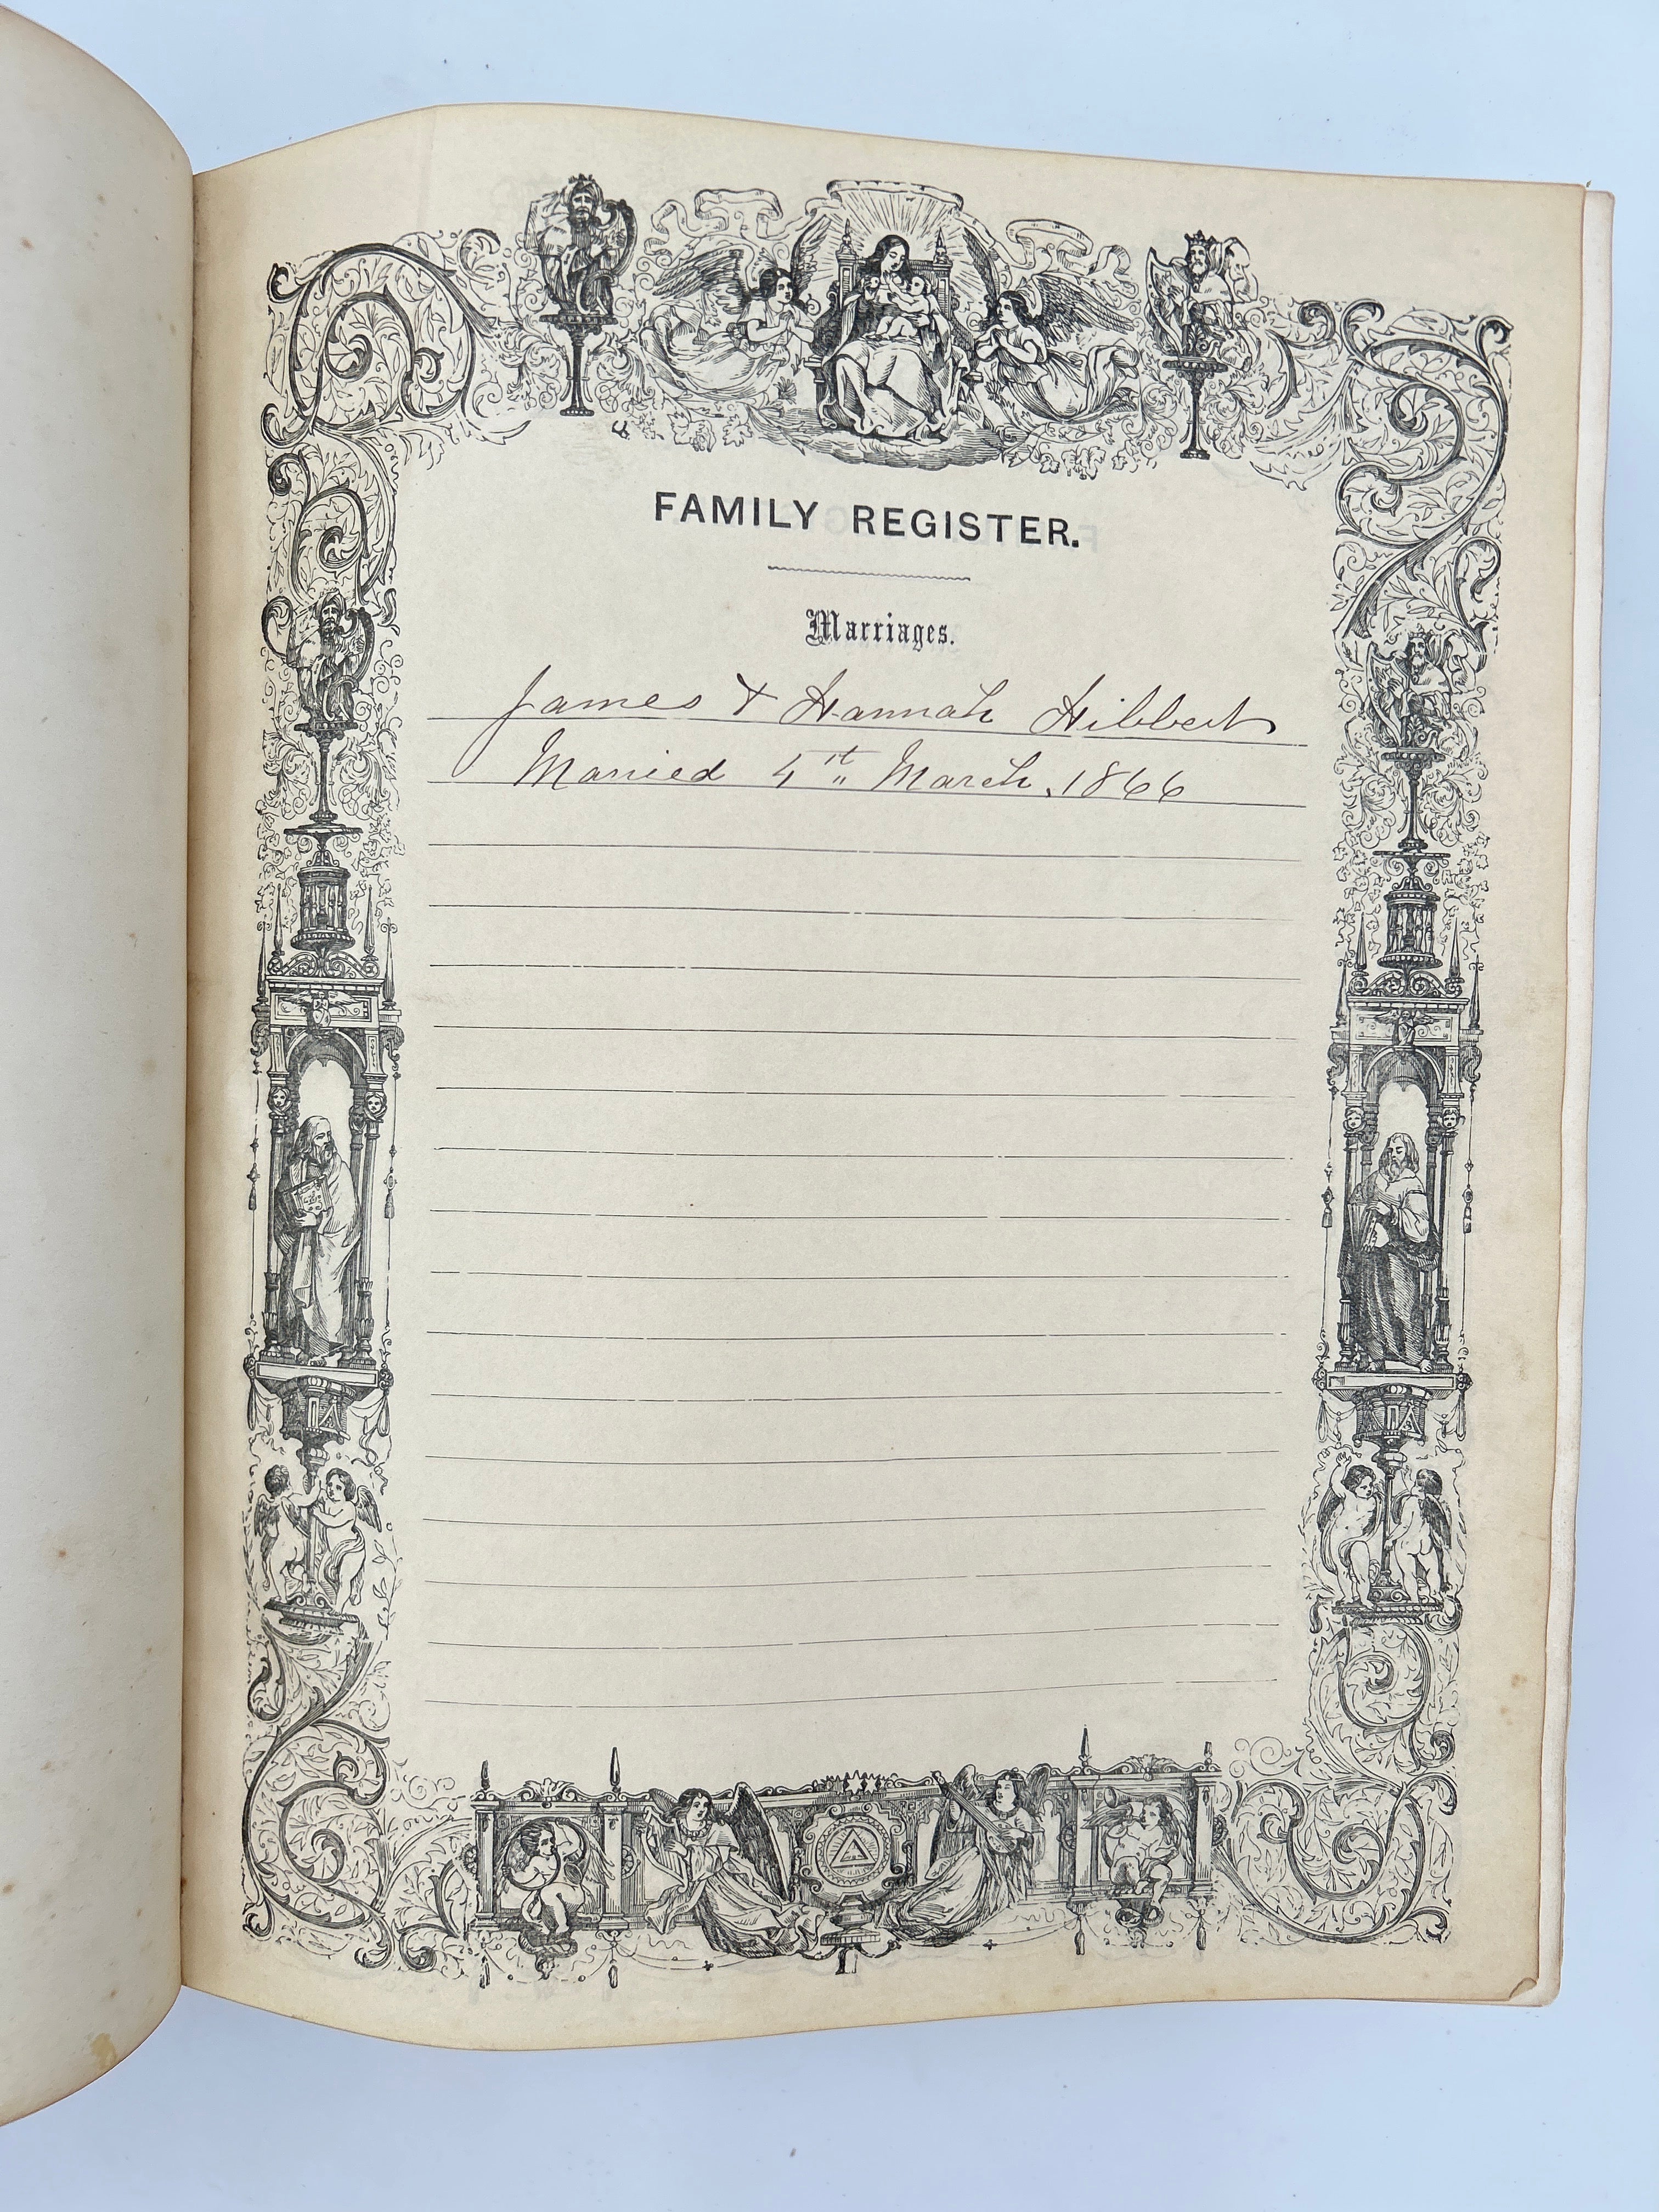 FAMILY REGISTER.
Marriages.
James & Hannah Hibbert
Married March, 1866